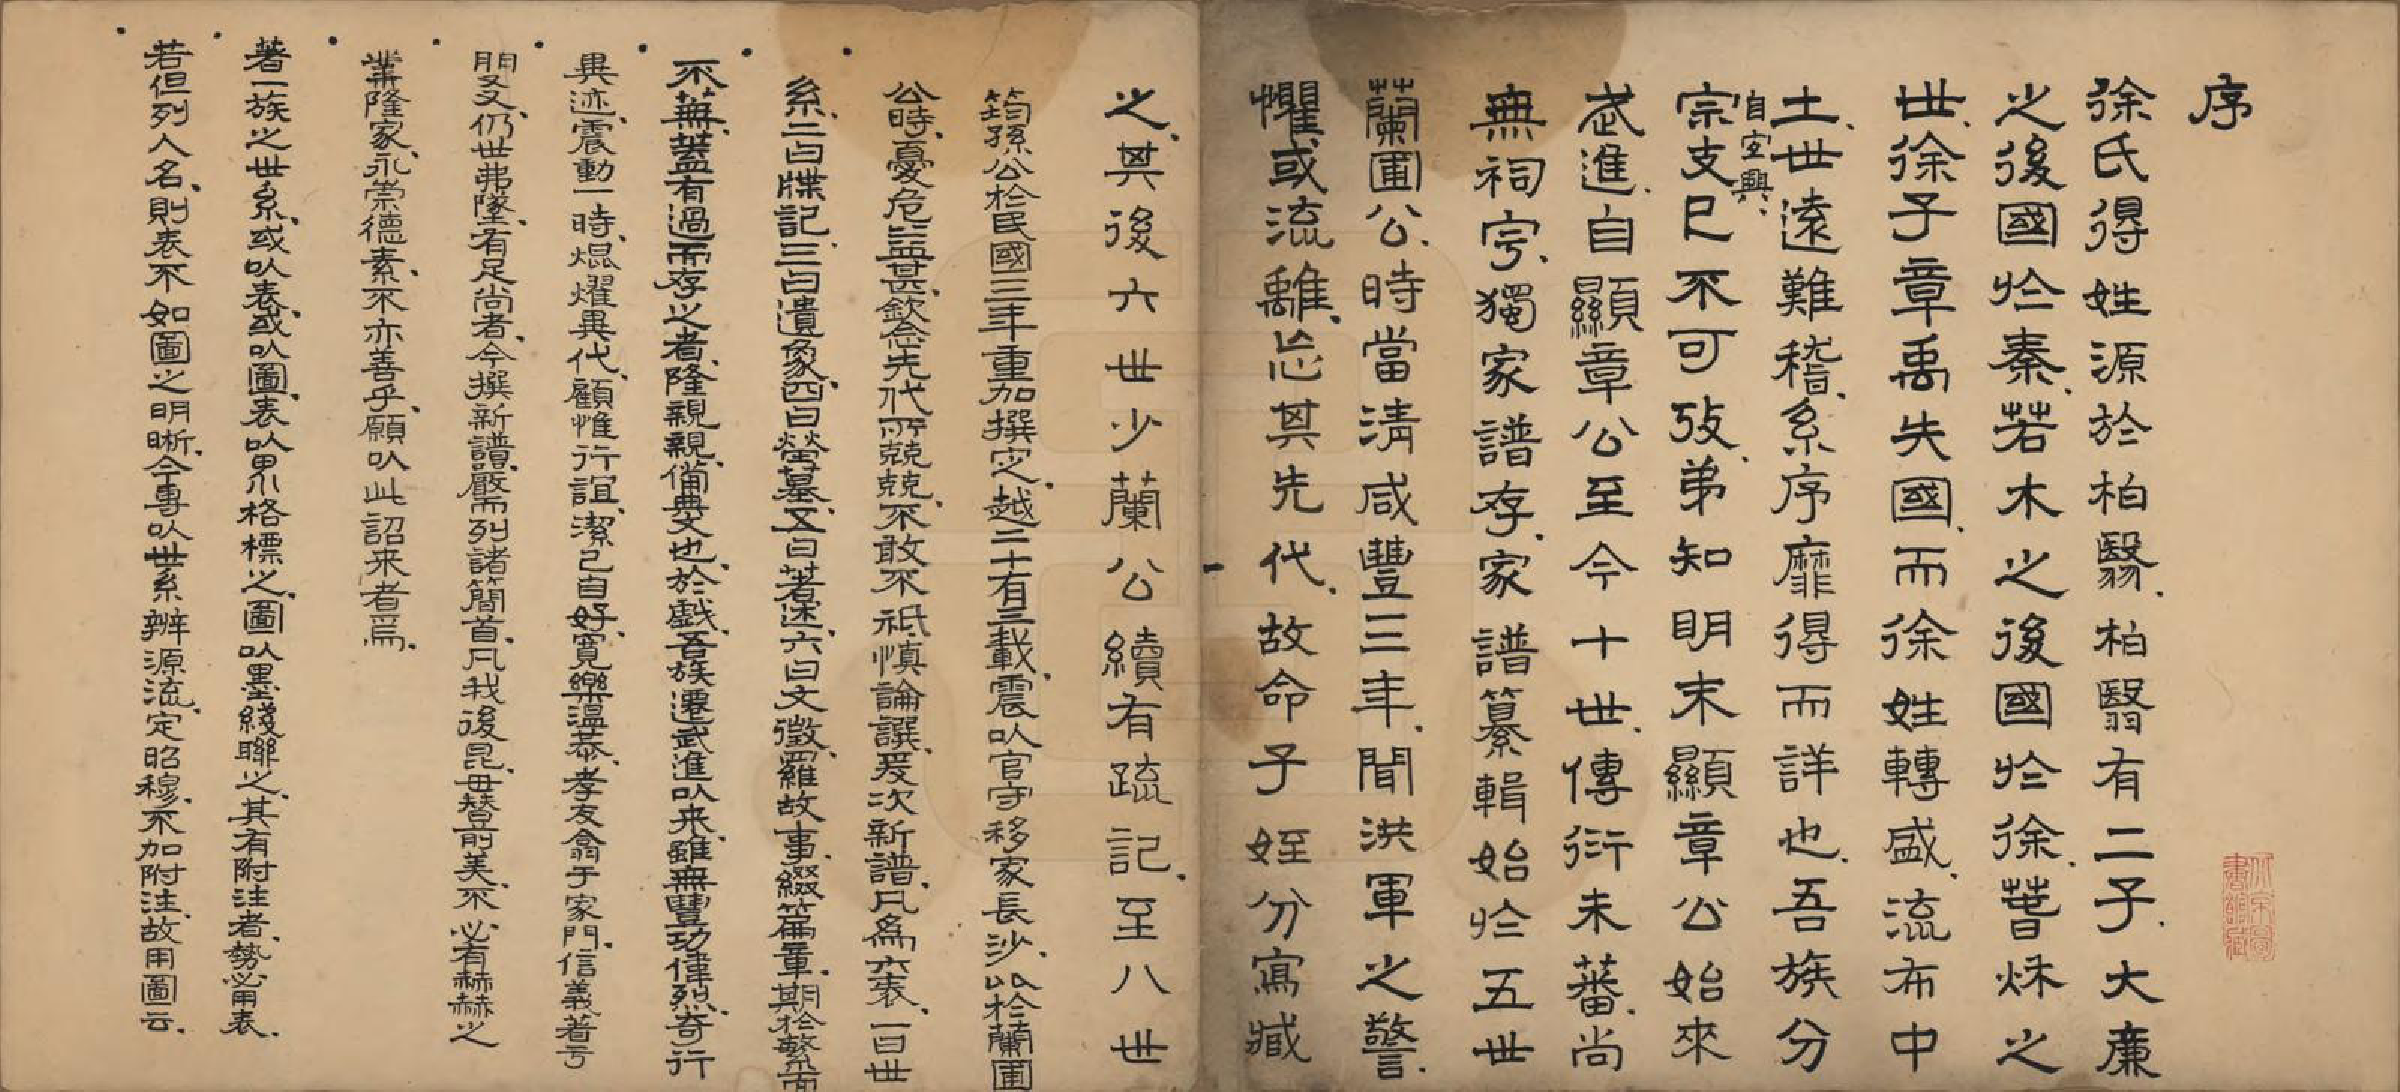 序
徐氏得姓源於柏翳、柏翳有二子、大廉
之後國於秦、若木之後國於徐、萅秌之
世、徐子章禹失國、而徐姓轉盛、流布中
土、世遠難稽、系序靡得而詳也、吾族分
自宜興、
宗支已不可攷、弟知明末顯章公始來
武進、自顯章公至今十世、傳衍未蕃、尚
無祠字、獨家譜存、家譜纂輯始於五世
蘭圃公、時當清咸豐三年、聞洪軍之警、
懼或流離、忘其先代、故命子姪分寫臧
之、其後六世少蘭公續有疏記、至八世
筠孫公於民國三年重加撰定、越二十有三載、震㠯官守移家長沙、比於蘭圃
公時、憂危益甚、欽念先代所兢兢、不敢不祇慎論譔、爰次新譜、凡為六袠、一曰世
系、二曰牒記、三曰遺象、四曰塋墓、五曰著述、六曰文徵、羅故事、綴篇章、期於繁而
不蕪、葢有過而存之者、隆親親、備典文也、於戲、吾族遷武進㠯來、雖無豐功偉烈、奇行
異迹、震動一時、焜燿異代、顧惟行誼、潔己自好、寬樂溫恭、孝友翕于家門、信義著亏
朋友、仍世弗墜、有足尚者、今撰新譜、嚴而列諸簡首、凡我後昆、毋朁前美、不必有赫赫之
業、隆家、永崇德素、不亦善乎、願㠯此詔来者焉、
著一族之世系、或㠯表、或㠯圖、表㠯界格標之、圖㠯墨綫聯之、其有附注者、勢必用表、
若但列人名、則表不如圖之明晰、今專㠯世系辨源流、定昭穆、不加附注、故用圖云、